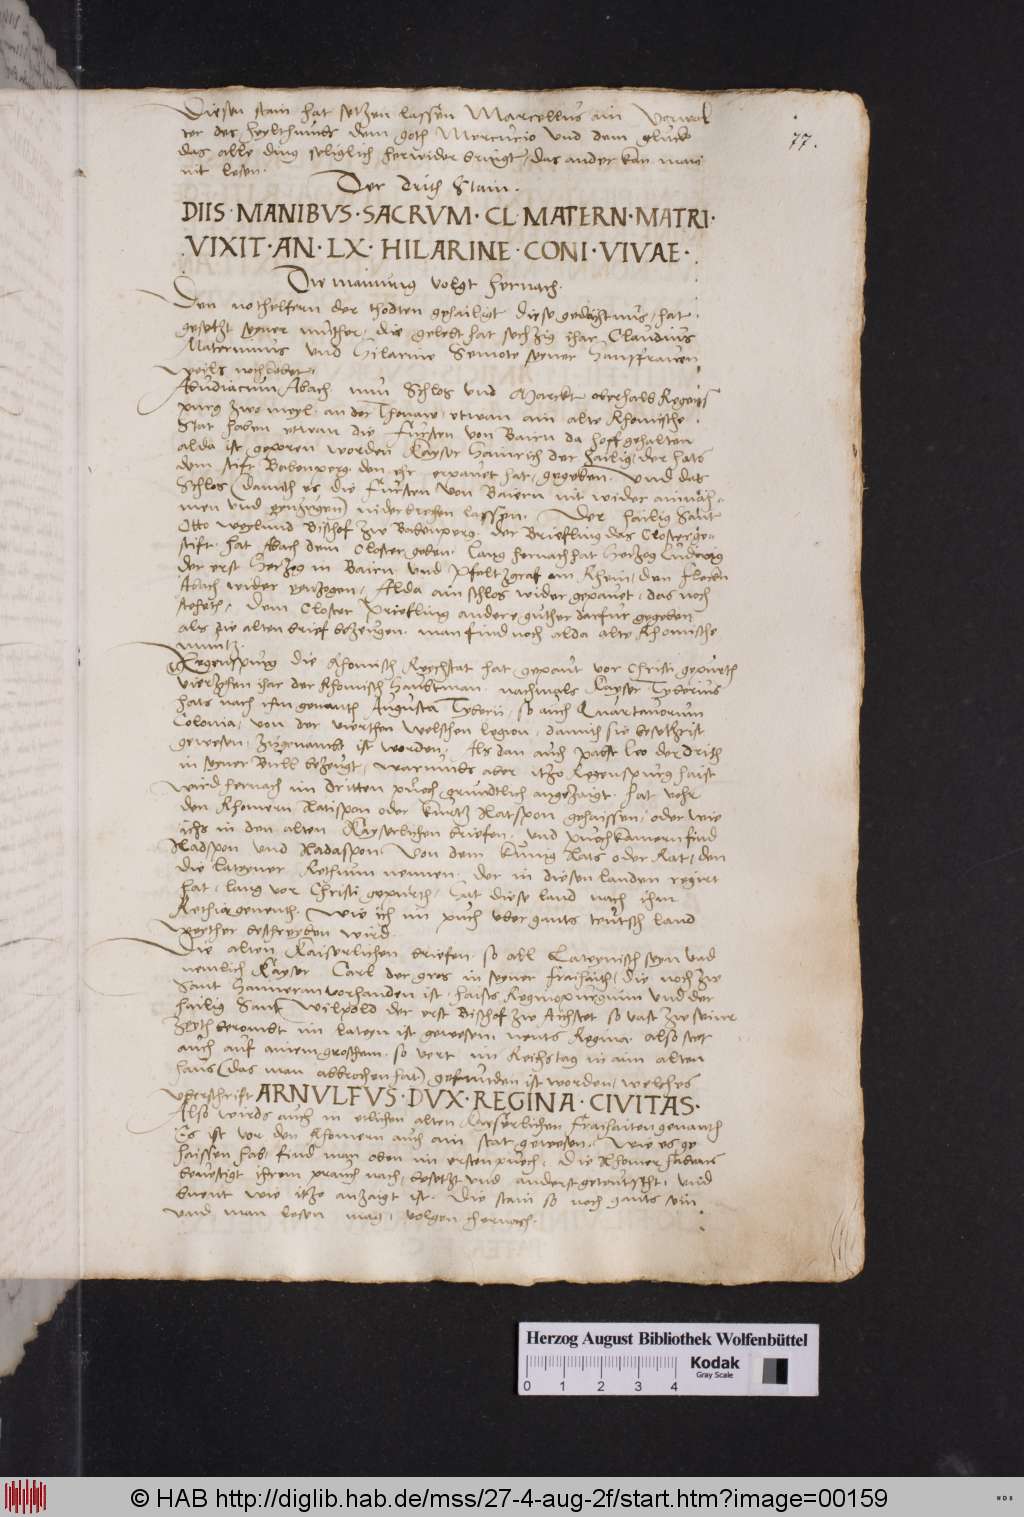 Diesen stain hat setzen lassen Marcellus ain Verwal
ter des heylthumbs dem goth Mercurio Und dem glückh
das alle ding seliglich herwider bringt, das ander kan man
nit lesen.
77.
Der drith Stain.
DIIS · MANIBVS · SACRVM · CL MATERN · MATRI ·
VIXIT · AN · LX · HILARINE · CONI · VIVAE ·
Die mainung volgt hernach.
Den nothelfern der thodten gehailigt diese gedechtnus, hat
gesetzt seyner muther, die gelebt hat sechzig ihar Claudius
Maternnus Und Hilarine Semote seyner Hausfrauen
weils noch lebet.
Abudiacum, Abach nun Schlos und Marckt oberhalb Regens
purg zwo meyl, an der Thonaw, etwan ain alte Rhomische
Stat haben etwan die Fürsten von Bairn da hoff gehalten
alda ist geporen worden Kayser Hainrich der hailig, der hats
dem stift Babenperg, den ehr erpauet hat, gegeben. Und das
Schlos (damith es die Fürsten von Baiern nit wider annäh-
men Und einzugen) niderbrechen lassen. Der hailig Sant
Otto weylund Bischof zw Babenperg, der Briefling das Closter ge-
stift, hat Abach dem Closter geben. Lang hernach hat Herzog Ludwig
der erst Herzog in Bairn und Pfaltzgraf am Rhein, den flecken
Abach wider einzogen, Alda ain schlos wider gepauet, das noch
steheth, Dem Closter Priefling andere güther darfur gegeben
als die alten brief bezeugen. man find noch alda alte Rhomische
muntz.
Regenspurg die Rhomisch Reychstat hat gepaut vor Christi gepurth
vierzehen ihar der Rhomisch Haubtman nachmals Kayser Tyberius
hats nach ihm genenth Augusta Tyberii, so auch Quartanorum
Colonia, von der vierthen welschen legion, damith sie besetzt ist
gewesen, zugenambt ist worden. Als dan auch pabst Leo der drith
in seyner Bull bezeugt, warumbs aber itzo Regenspurg haist
wird hernach im dritten puech grundtlich angezaigt. hat vohr
den Rhomern Ratispon oder kurtz Ratspon gehaissen, oder wie
ichs in den alten Kayserlichen briefen, und puechkamern find
Radspon Und Radaspon. Von dem kunig Rats oder Rat, den
die Lateyner Rethum nennen, der in diesen landen regirt
hat, lang vor Christi gepurth. hat diese land nach ihm
Rethia genenth. wie ich im puech uber gants teutsch land
weyther beschreyben wird.
Die alten Kaiserlichen briefen so all Lateynisch seyn und
nemlich Kayser Carl der gros in seyner freihaith, die noch zw
Sant Haimeran vorhanden ist, haists Reginopurgium und der
hailig Sant Wilpold der erst Bischof zw Aichstet so vast zw seiner
zeyth beromt im lateyn ist gewesen, nents Regina. also stet
auch auf ainem groschen, so vert im Reichstag in ain alten
haus (das man abbrochen hat) gefunden ist worden, welches
uberschrift ARNVLFVS · DVX · REGINA · CIVITAS ·
Also wirds auch in etlichen alten Kayserlichen freihaiten genanth
Es ist vor den Rhomern auch ain stat gewesen. wie es ge
haissen hab, find man oben im ersten puech. Die Rhomer habens
bevestigt ihrem prauch nach, besetzt und anderst geteutscht, und
benent wie itzo anzaigt ist. Die stain so noch gants sein
und man lesen mag, volgen hernach.
Herzog August Bibliothek Wolfenbüttel
Kodak
Gray Scale
0 1 2 3 4
© HAB http://diglib.hab.de/mss/27-4-aug-2f/start.htm?image=00159